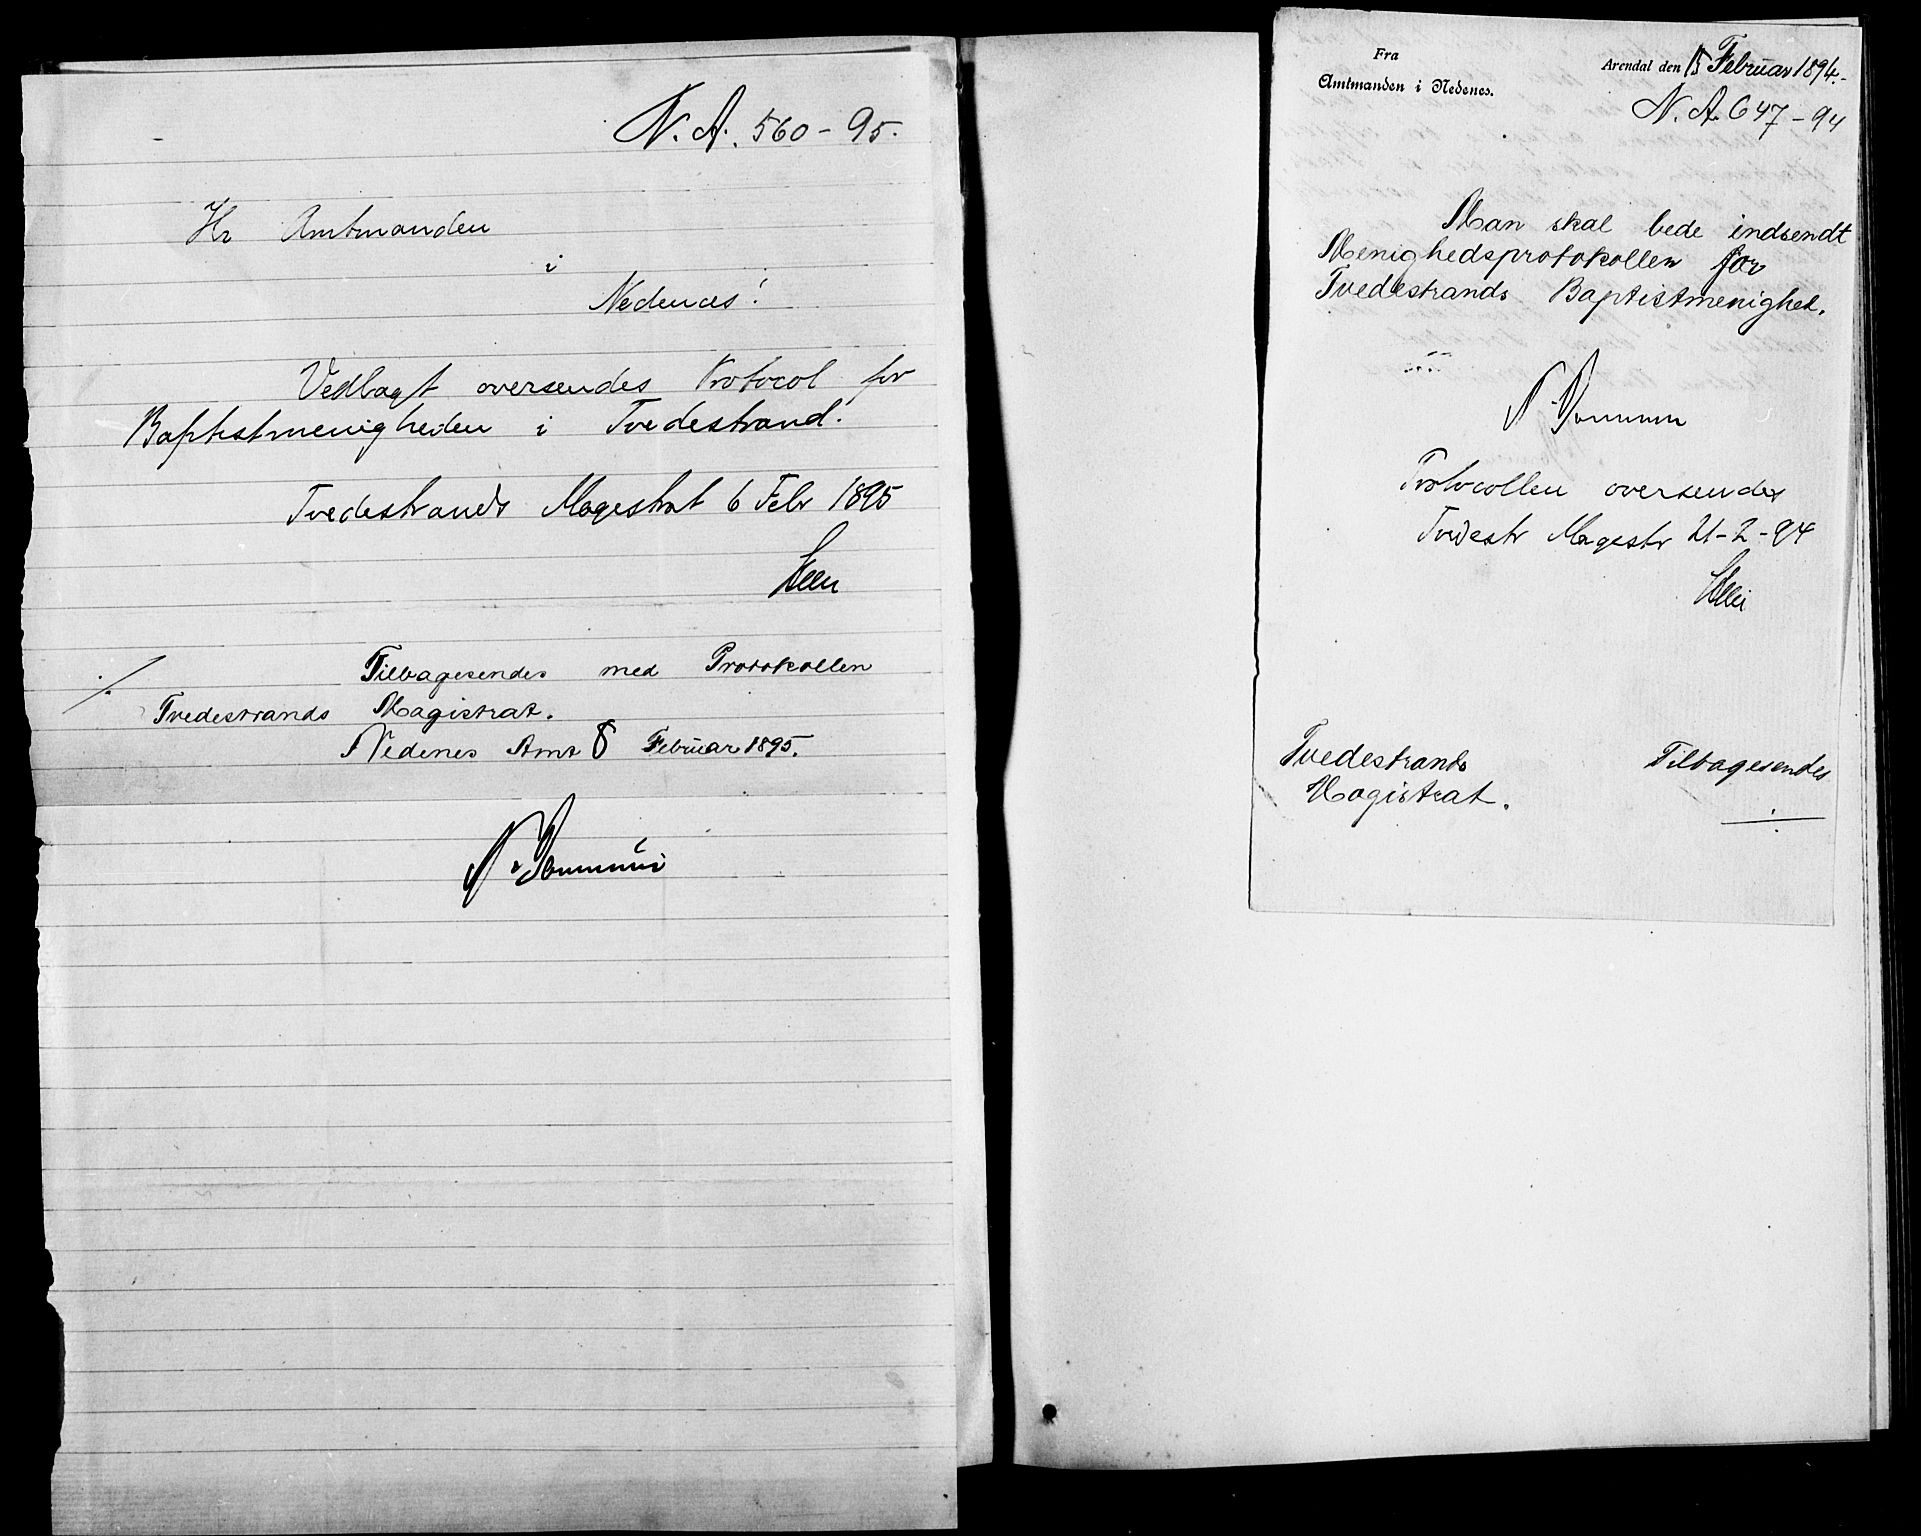 N. A. 560-95.
Hr Amtmanden
i
Nedenæs!
Vedlagt oversendes Protocol for
Baptistmenigheden i Tvedestrand.
Tvedestrands Magestrat 6 Febr 1895
Tilbagesendes med Protokollen
Tvedestrands Magistrat.
Nedenes Amt 8 Februar 1895.
Fra
Amtmanden i Nedenes.
Arendal den 15 Februar 1894.-
N. A. 647-94
Man skal bede indsendt
Menighedsprotokollen for
Tvedestrands Baptistmenighed.
Protocollen oversendes
Tvedestr Magestr 21-2-94
Tvedestrands Tilbagesendes
Magistrat.